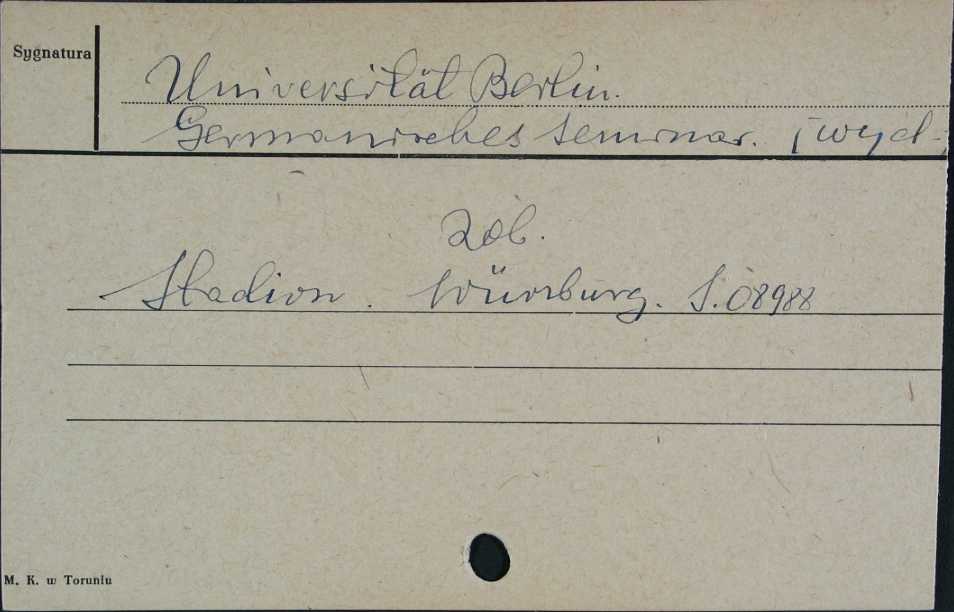 Sygnatura
Universität Berlin.
Germanisches Seminar. [wyd.
Zob.
Stadion. Würzburg. S. 08988
M. K. w Toruniu